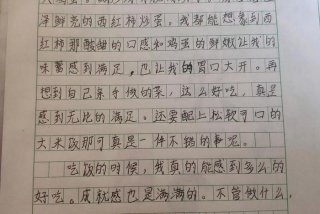 泽鲜亮的西红柿炒蛋，我都能想象到西
红柿那酸甜的口感和鸡蛋的鲜嫩让我的
味蕾感到满足，也让我的胃口大开。再
想到自己亲手做的菜，这么好吃，真是
感到无比的满足。还要配上松软可口的
大米饭那可真是一件不错的事呢。
吃饭的时候，我真的能感到多么的
好吃。成就感也是满满的。不管做什么，